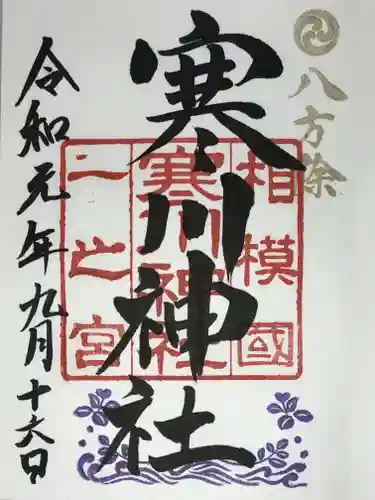 八方除
寒川神社
相模國
寒川神社
二之宮
令和元年九月十六日